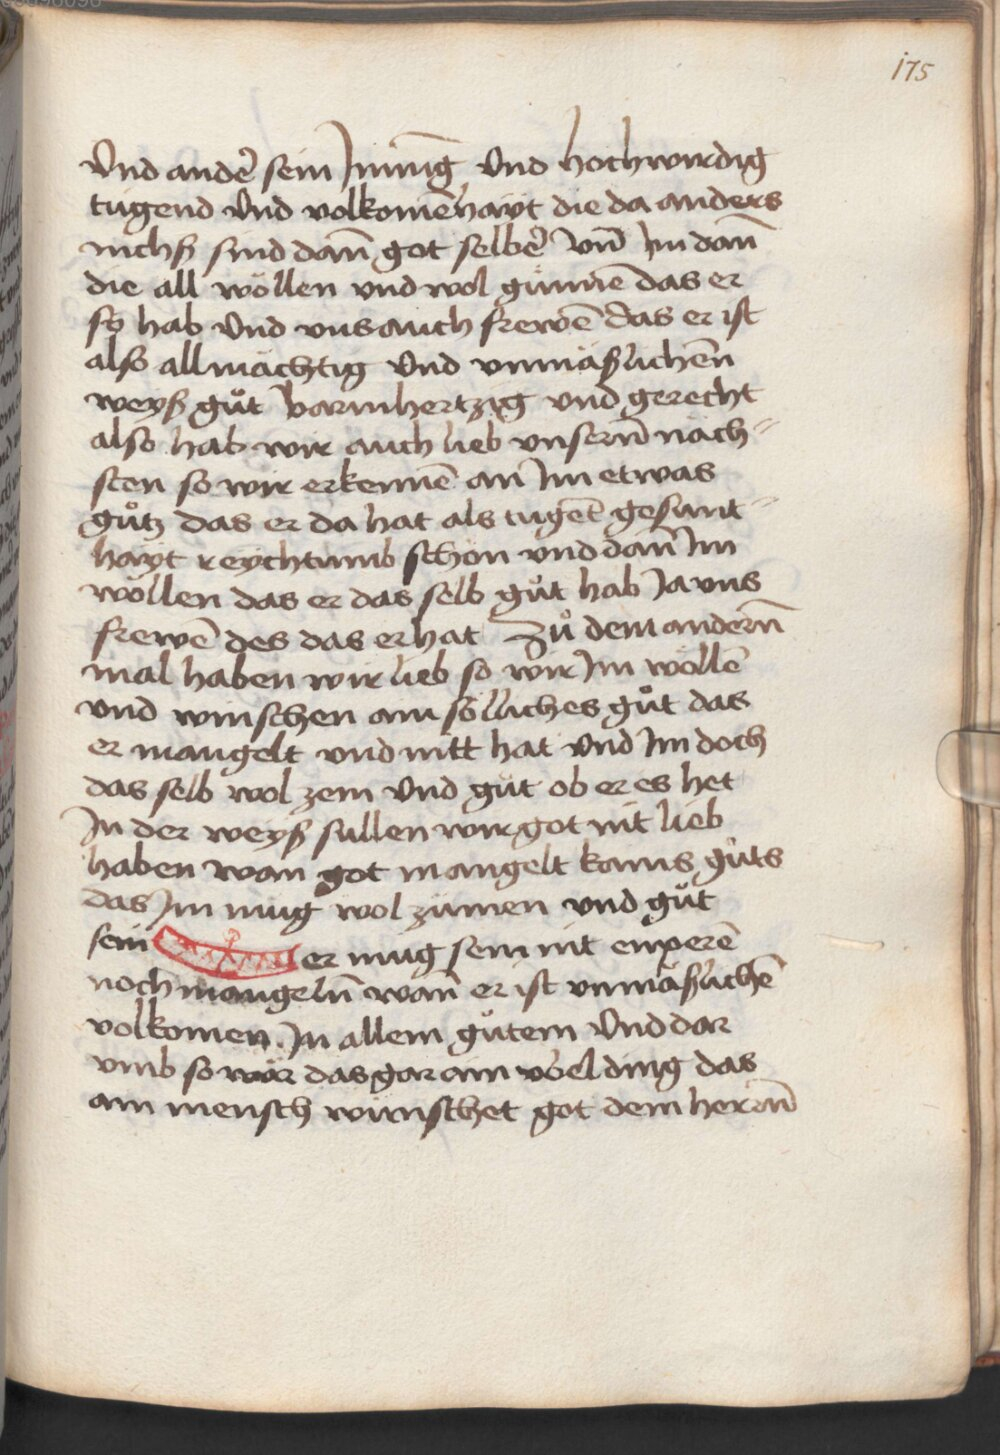 175
Vnd ander̄ sein Jnnīg Vnd hochwirdig
tugend Vnd volkomēhayt die da anders
nichß sind dan̄ got selber̄ vn̄ Jm dan̄
die all wöllen vnd wol günnē das er
sy hab Vnd vns auch frewē das er ist
also allmächtig Vnd vnmäßlichen̄
weyß gůt barmhertzig vnd gerecht
also hab wir auch lieb vnsern̄ näch=
sten so wir erkennē an Jm etwas
gůtz das er da hat als tugēt gesunt=
hayt reychtumb schön vnd dan̄ Jm
wöllen das er das selb gůt hab Ja vns
frewē des das er hat Zů dem andern̄
mal haben wir lieb so wir Jm wöllē
vnd winschen ain sölliches gůt das
er mangelt vnd nitt hat Vnd Jm doch
das selb wol zem Vnd gůt ob er es het
Jn der weyß sullen wir got nit lieb
haben wan got mangelt kains gůts
das Jm mug wol zümen vnd gůt
sein er mug sein nit enperē
noch mangeln̄ wan̄ er ist vnmäßlichē
volkomen Jn allem gůtem Vnd dar
vmb so wär das gar ain vbel ding das
ain mensch wünschet got dem herrn̄